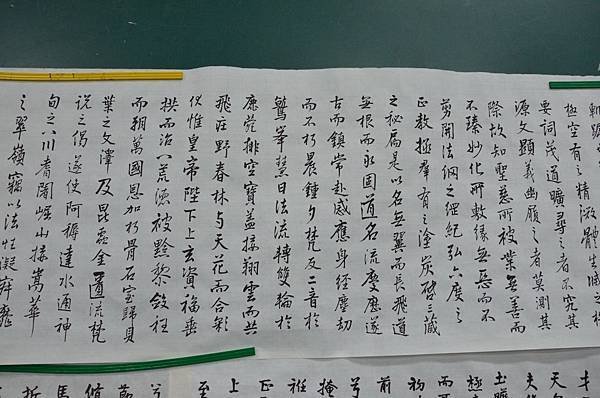 極空有之精微體生滅之機
要詞茂道曠尋之者不究其
源文顯義幽履之者莫測其
際故知聖慈所被業無善而
不臻妙化所敷緣無惡而不
剪開法網之綱紀弘六度之
正教拯群有之塗炭啓三藏
之秘扃是以名無翼而長飛道
無根而永固道名流慶歷遂
古而鎮常赴感應身經塵劫
而不朽晨鍾夕梵交二音於
鷲峯慧日法流轉雙輪於
鹿菀排空寶蓋接翔雲而共
飛莊野春林与天花而合彩
伏惟皇帝陛下上玄資福垂
拱而治八荒德被黔黎斂衽
而朝萬國恩加朽骨石室歸貝
葉之文澤及昆蟲金匱流梵
說之偈遂使阿耨達水通神
甸之八川耆闍崛山接嵩華
之翠嶺竊以法性凝寂靡